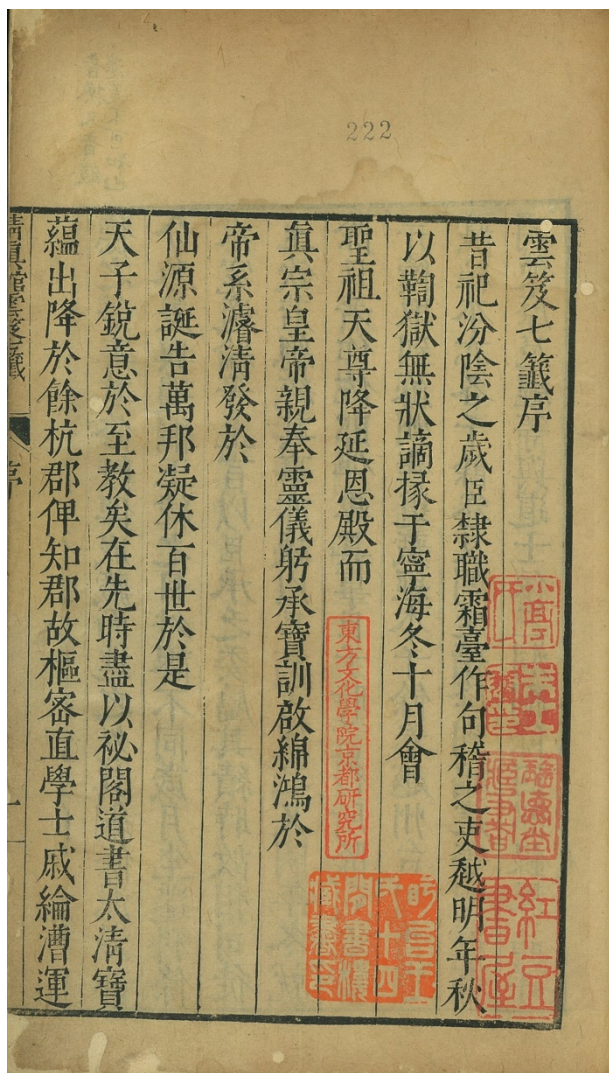 222
雲笈七籤序
昔祀汾陰之歲臣隸職霜臺作句稽之吏越明年秋
以鞫獄無狀謫掾于寧海冬十月會
聖祖天尊降延恩殿而
真宗皇帝親奉靈儀躬承寶訓啟綿鴻於
帝系濬淸發於
仙源誕告萬邦凝休百世於是
天子銳意於至教矣在先時盡以祕閣道書太淸寶
蘊出降於餘杭郡俾知郡故樞密直學士戚綸漕運
淸真館雲笈七籤
序
一
東方文化學院京都研究所
紅豆書屋